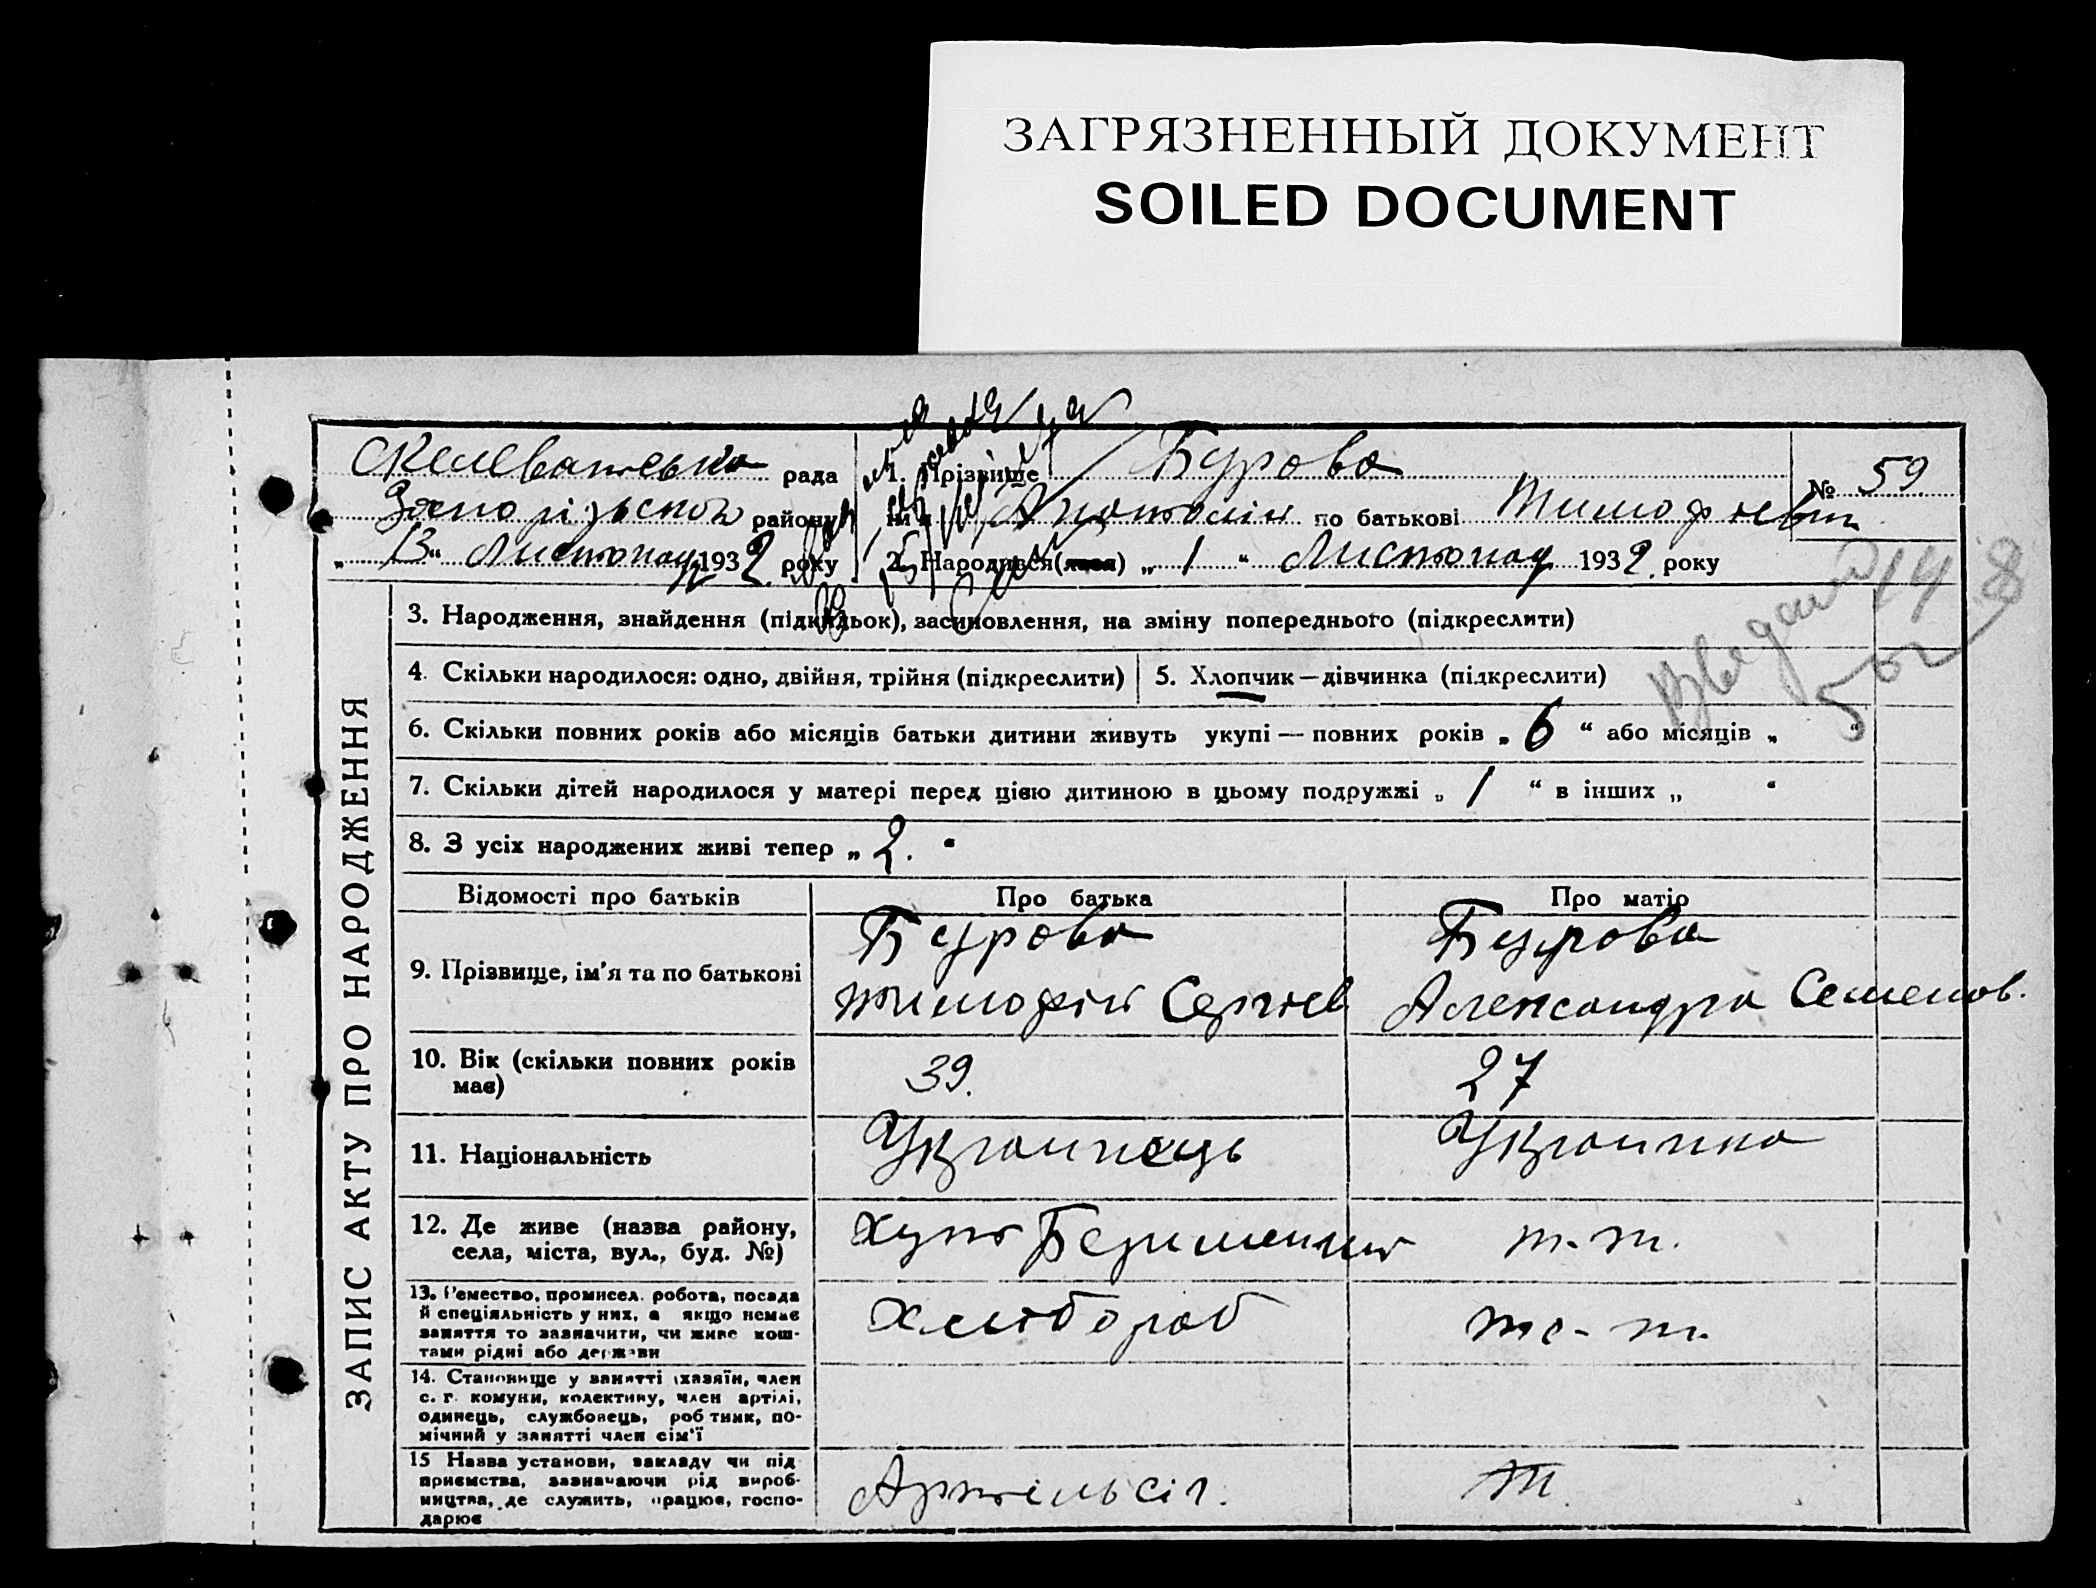 ЗАГРЯЗНЕННЫЙ ДОКУМЕНТ
SOILED DOCUMENT
рада
району
„ 13 “ Листопад 1932 року
1. Прізвище Бурова
ім'я Анатолій по батькові
№ 59
2. Народився(лася) „ 1 “ Листопад 1932 року
3. Народження, знайдення (підкидьок), засиновлення, на зміну попереднього (підкреслити)
4. Скільки народилося: одно, двійня, трійня (підкреслити)
5. Хлопчик — дівчинка (підкреслити)
6. Скільки повних років або місяців батьки дитини живуть укупі — повних років „ 6 “ або місяців „ “
7. Скільки дітей народилося у матері перед цією дитиною в цьому подружжі „ 1 “ в інших „ “
8. З усіх народжених живі тепер „ 2. “
ЗАПИС АКТУ ПРО НАРОДЖЕННЯ
Відомості про батьків
Про батька
Про матір
9. Прізвище, ім'я та по батькові
Бурова
Тимофій Сергіев
Бурова
Александра Семенов.
10. Вік (скільки повних років
має)
39.
27
11. Національність
Украинець
Украинка
12. Де живе (назва району,
села, міста, вул., буд. №)
Хут
т-т.
13. Ремество, промисел, робота, посада
й спеціяльність у них, а якщо немає
заняття то зазначити, чи живе кош-
тами рідні або держави
Хлібороб
14. Становище у занятті (хазяїн, член
с. г. комуни, колективу, член артілі,
одинець, службовець, робітник, по-
мічний у занятті член сім'ї
15 Назва установи, закладу чи під
приємства, зазначаючи рід вироб-
ництва, де служить, працює, госпо-
дарює
Артіль